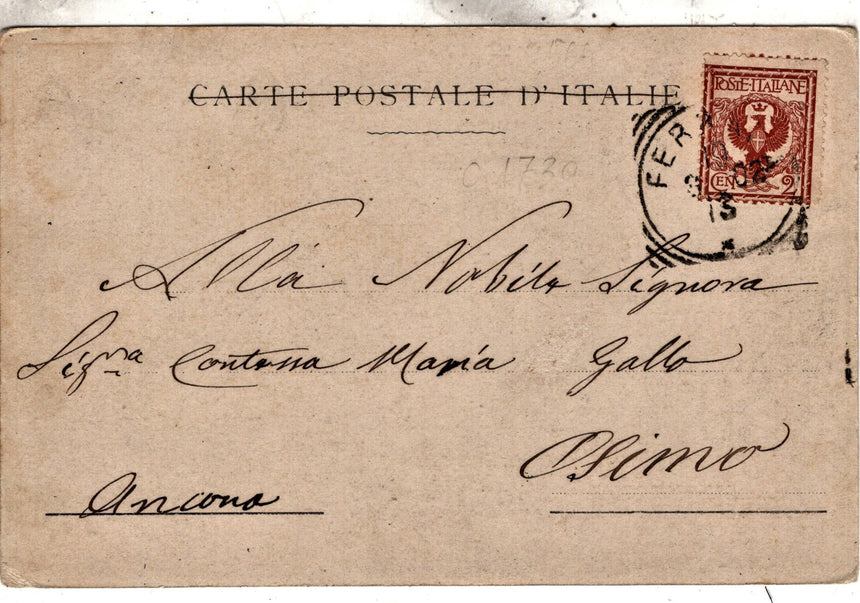 CARTE POSTALE D'ITALIE
POSTE-ITALIANE
CEN 2
FER
02
13
C 1720
Alla Nobile Signora
Sigra Contessa Maria Gallo
Osimo
Ancona